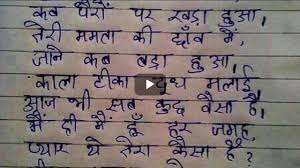 कब पैरों पर खड़ा हुआ,
तेरी ममता की छाँव में,
जाने कब बड़ा हुआ,
काला टीका दूध मलाई
आज भी सब कुछ वैसा है,
मैं ही मैं हूँ हर जगह,
प्यार ये तेरा कैसा है?